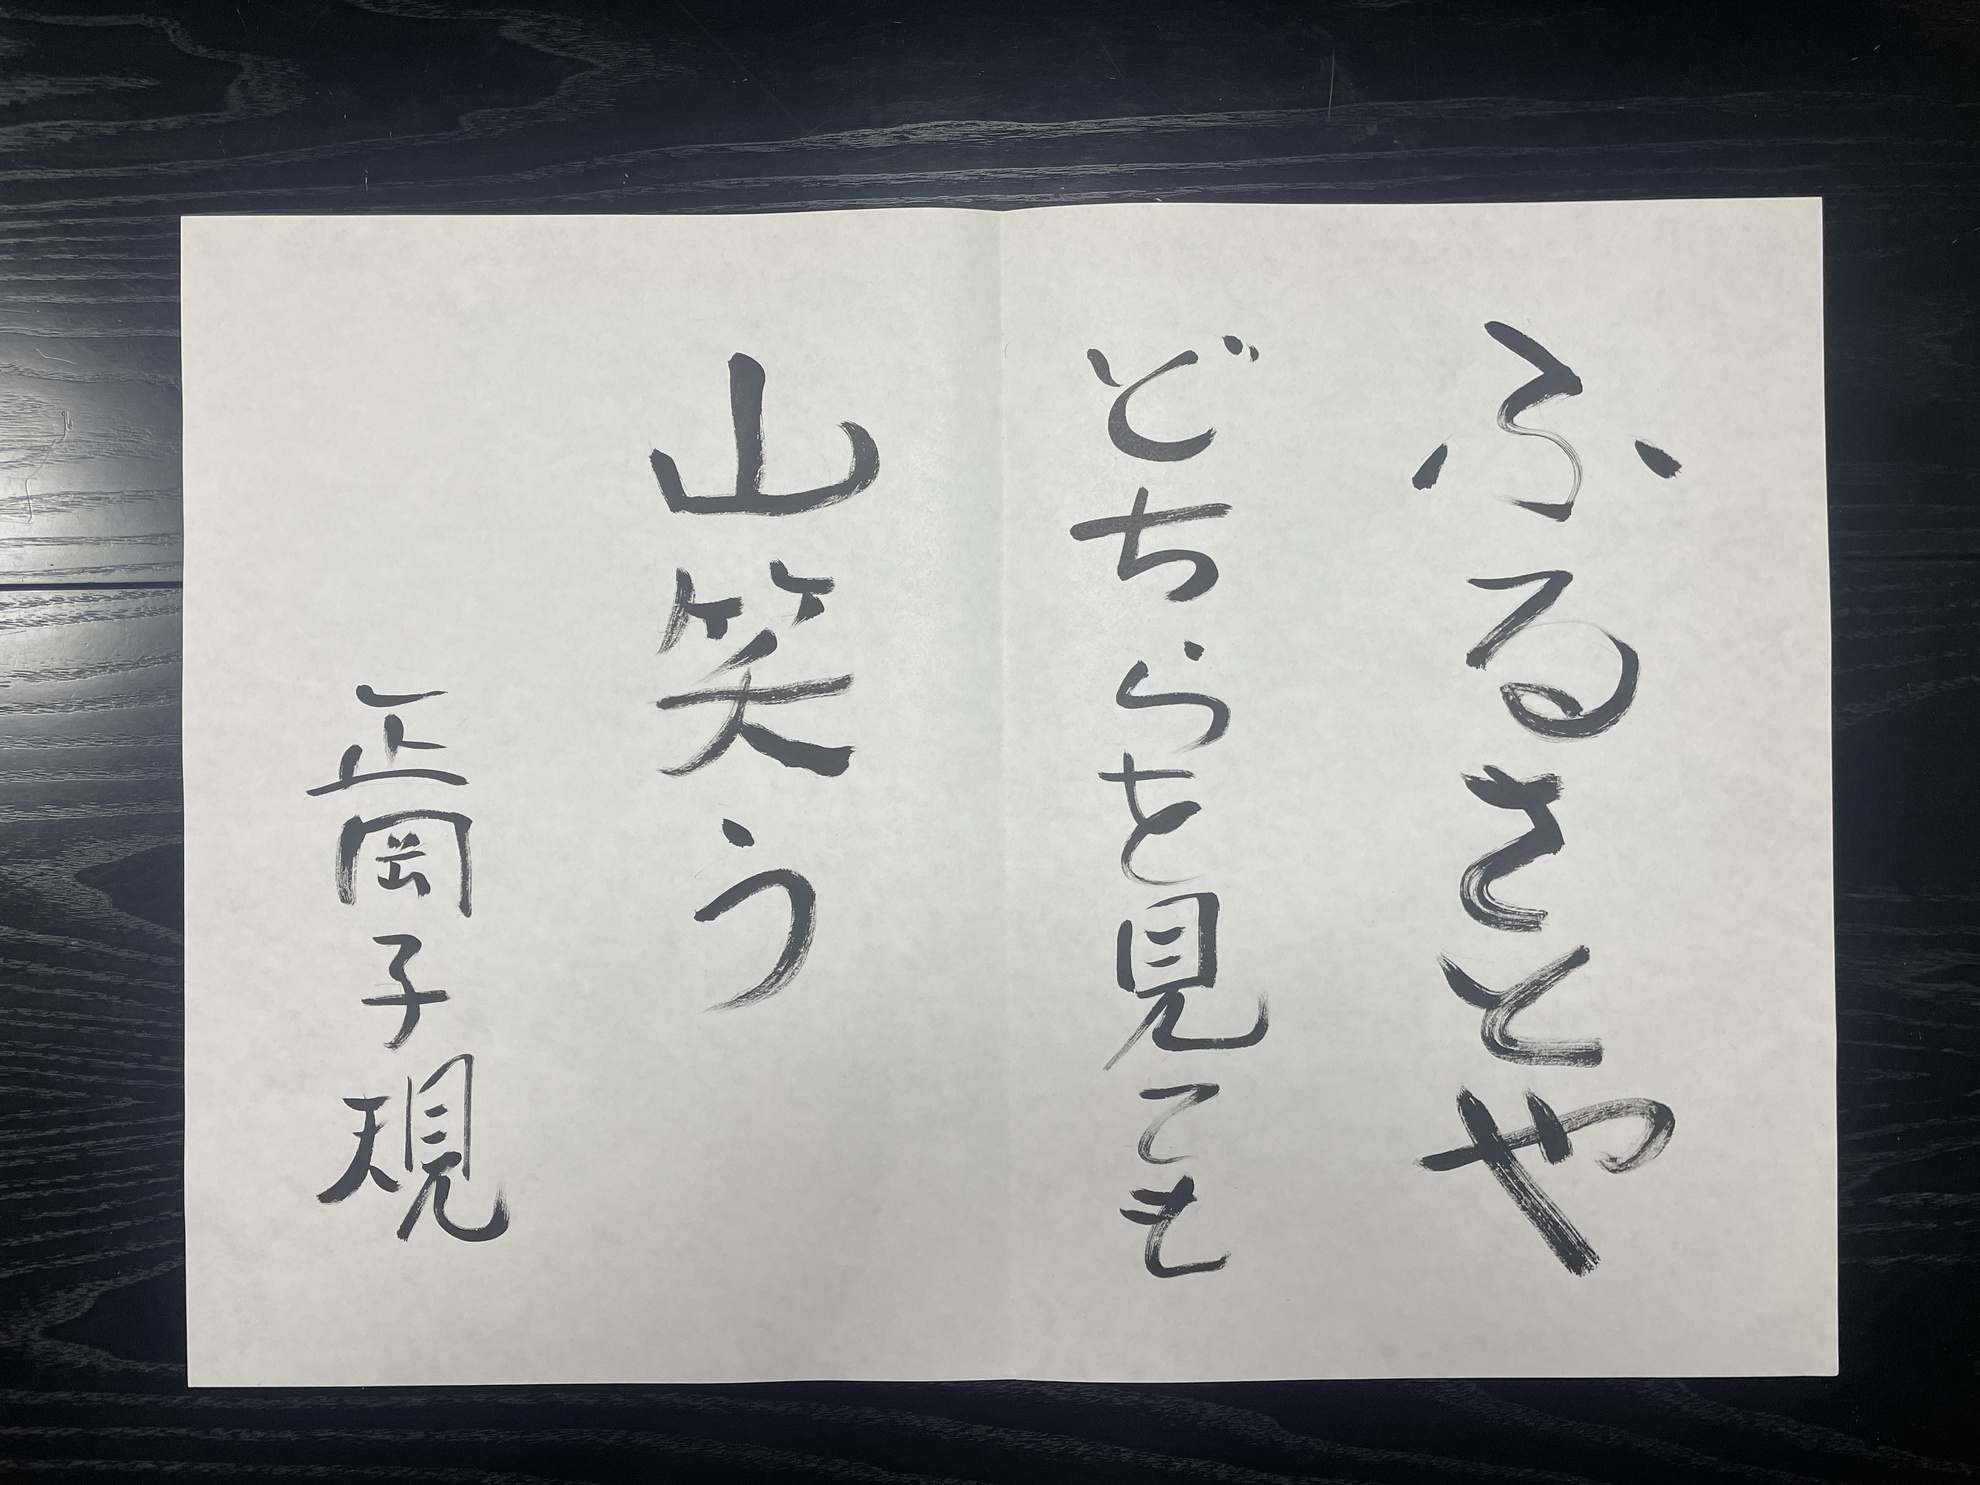 ふるさとや
どちらを見ても
山笑う
正岡子規